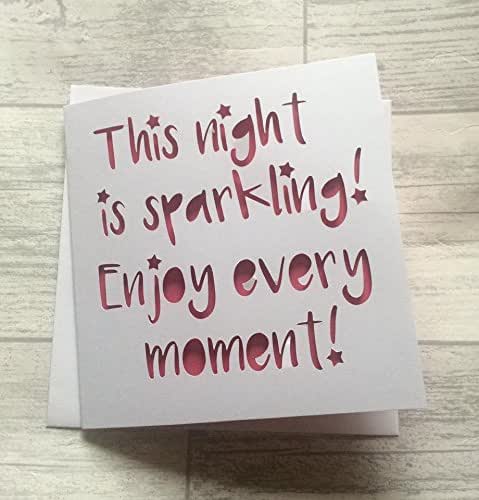 This night
is sparkling!
Enjoy every
moment!